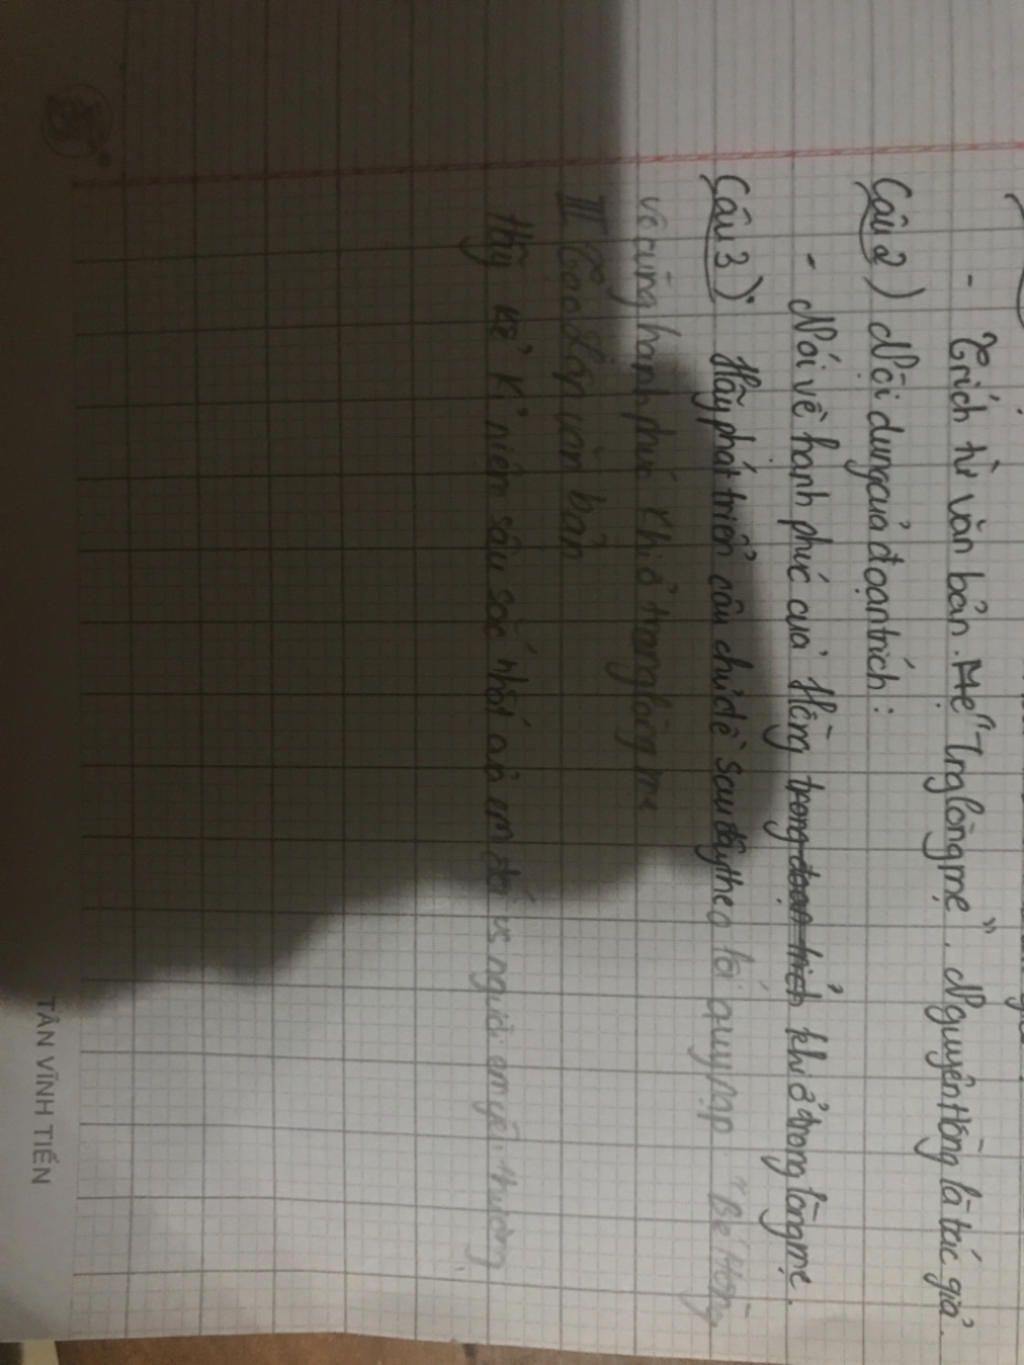 - Trích từ văn bản. Mẹ "Trg lòng mẹ". Nguyên Hồng là tác giả.
Câu 2) Nội dung của đoạn trích:
- Nói về hạnh phúc của Hồng trong đoạn trích khi ở trong lòng mẹ.
Câu 3): Hãy phát triển câu chủ đề sau đây theo lối quy nạp "Bé Hồng
vô cùng hạnh phúc khi ở trong lòng mẹ
II Tạo lập văn bản
Hãy kể kỉ niệm sâu sắc nhất của em đối vs người em yêu thương
TÂN VĨNH TIẾN